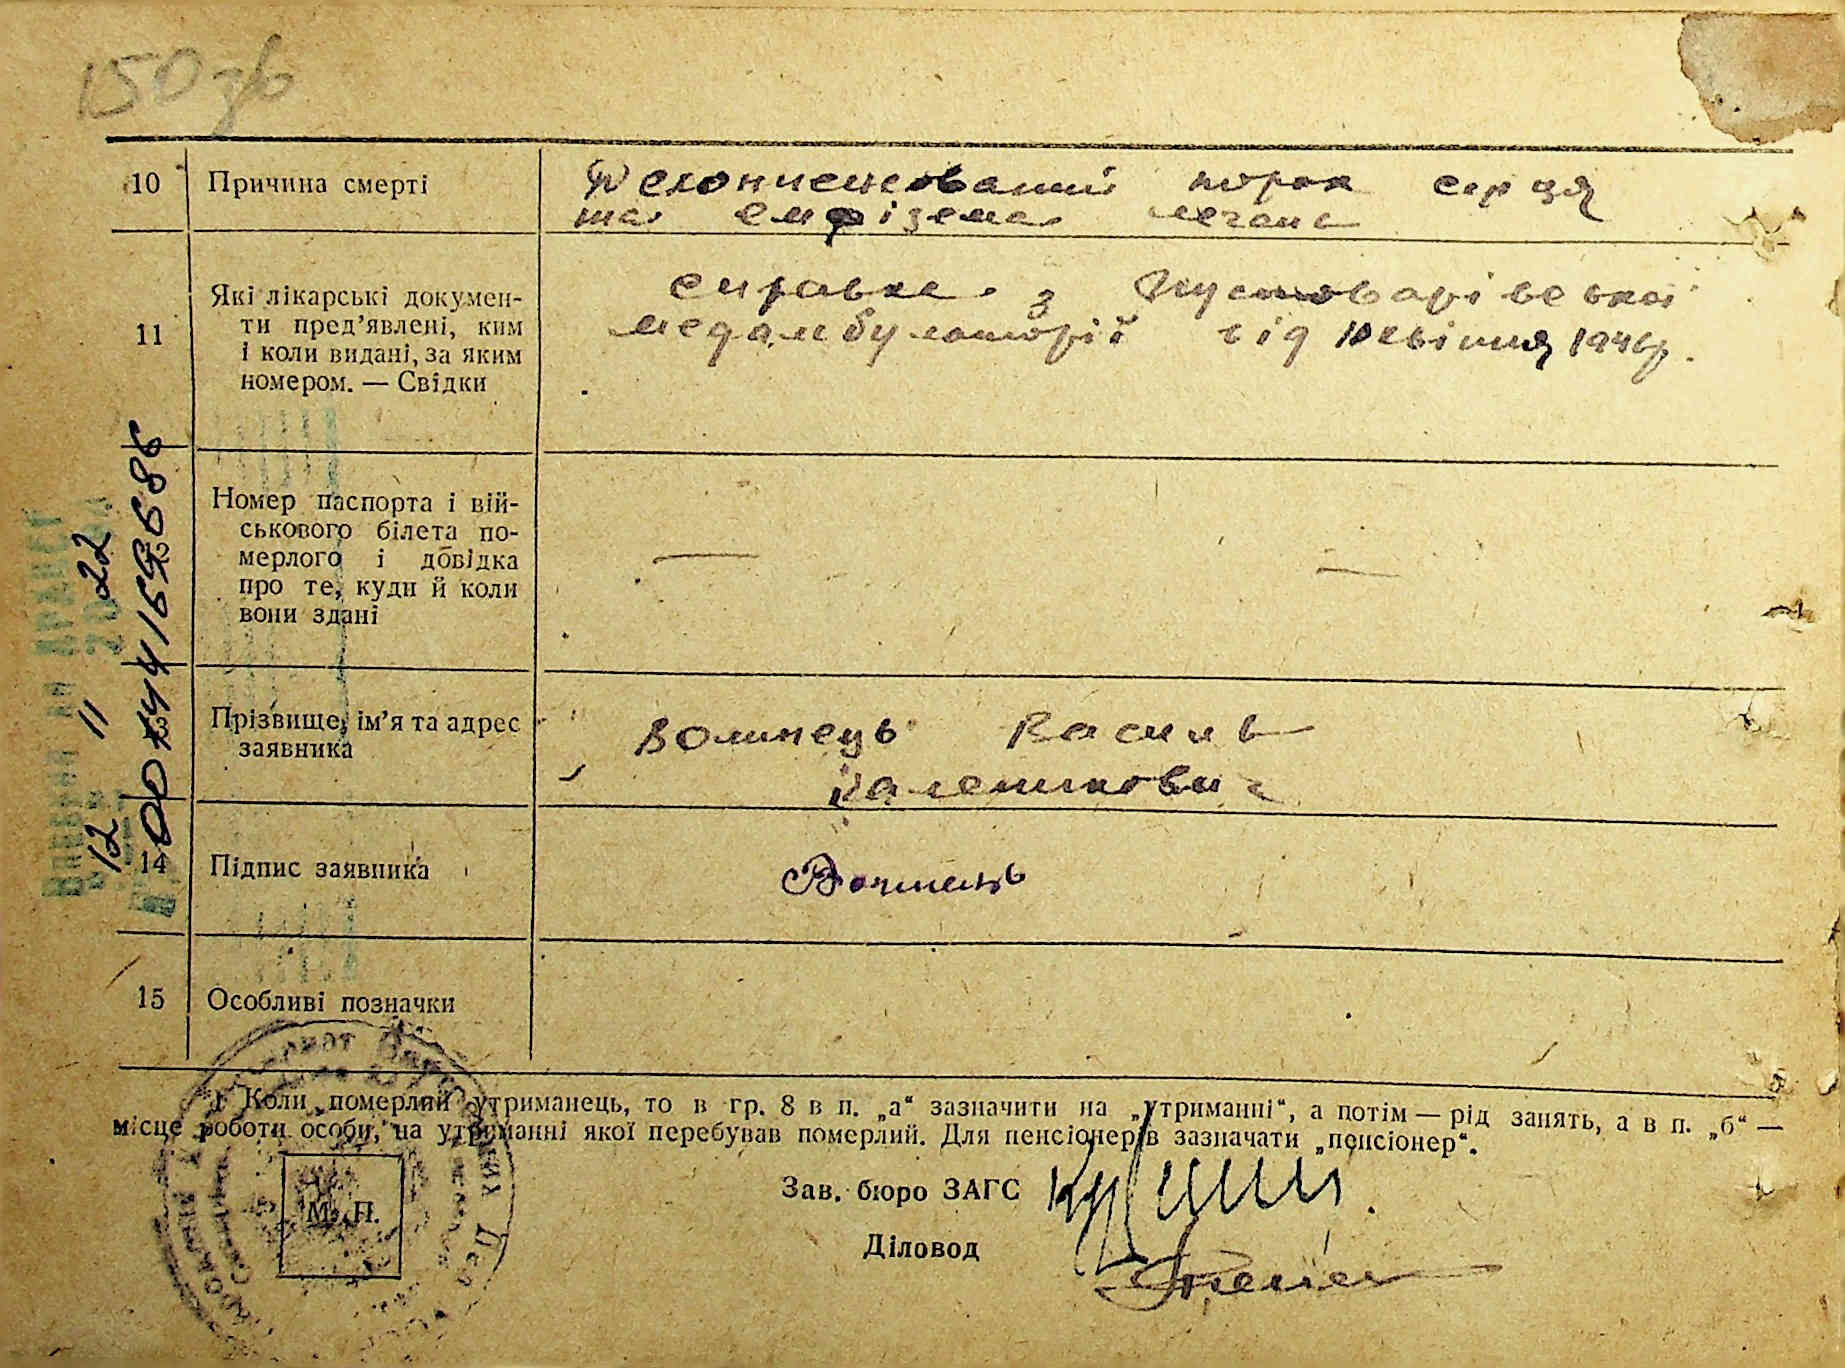 150 зв
10 Причина смерті
Декомпенсований порок серця
та емфізема легень
11 Які лікарські докумен-
ти пред’явлені, ким
і коли видані, за яким
номером. — Свідки
справка з Пустоварівської
медамбулаторії від 10 квітня 1946р.
Номер паспорта і вій-
ськового білета по-
мерлого і довідка
про те, куди й коли
вони здані
— —
Прізвище, ім’я та адрес
заявника
Волинець Василь
Каленикович
14 Підпис заявника
Волинець
15 Особливі позначки
12 11 22
1 Коли „померлий“ утриманець, то в гр. 8 в п. „а“ зазначити на „утриманні“, а потім — рід занять, а в п. „б“ —
місце роботи особи, на утриманні якої перебував померлий. Для пенсіонерів зазначати „пенсіонер“.
М. П.
Зав. бюро ЗАГС
Діловод